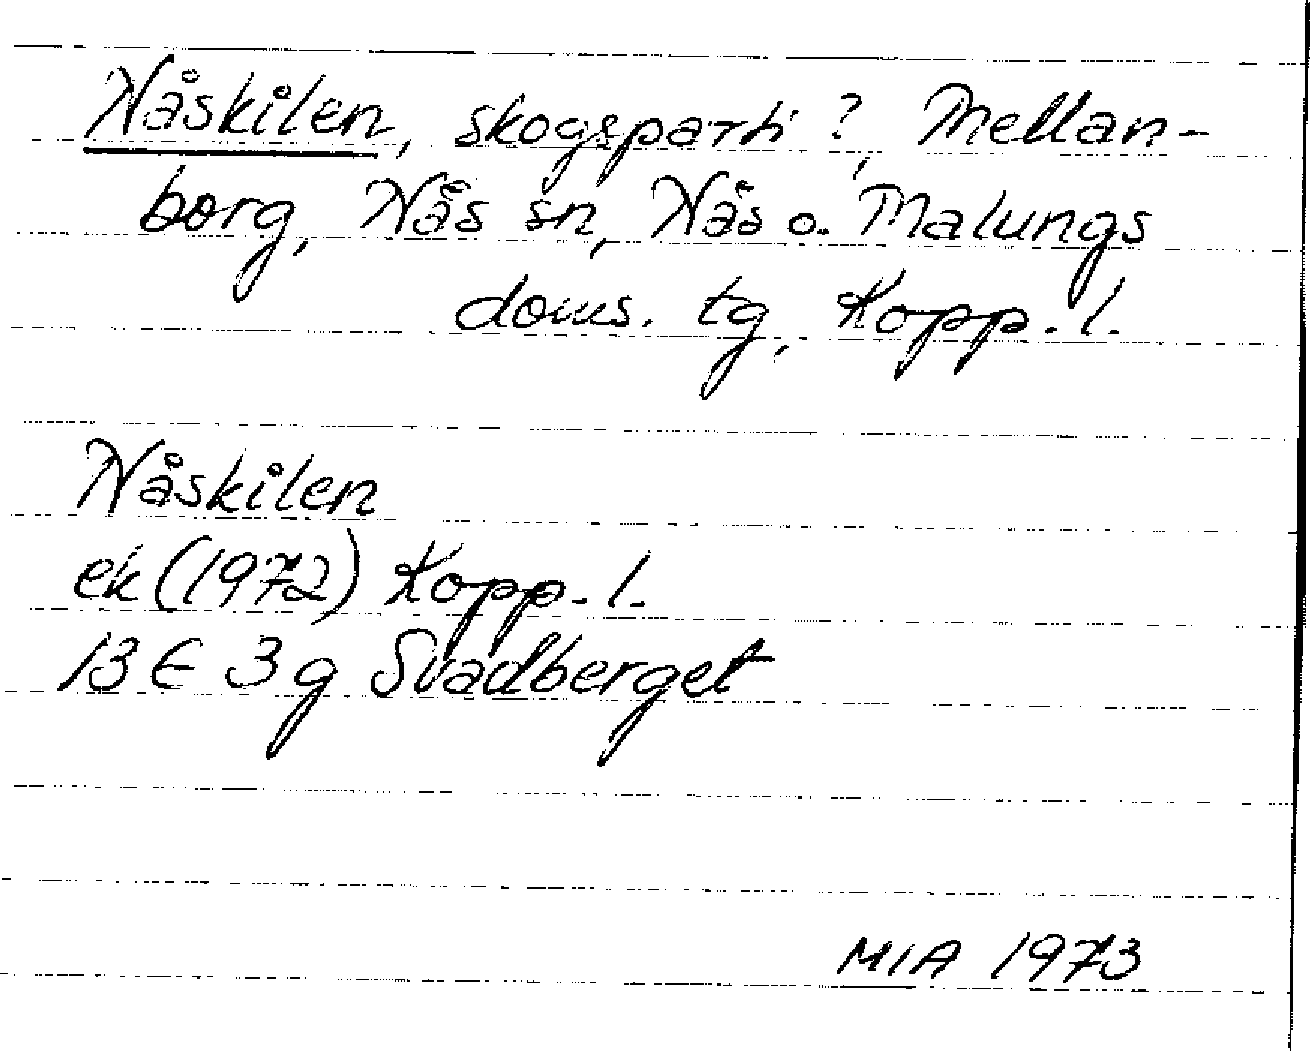 Nåskilen, skogsparti?, Mellan-
borg, Nås sn, Nås o. Malungs
doms. tg, Kopp. l.
Nåskilen
ek (1972) Kopp. l.
13 E 3g Svadberget
MIA 1973